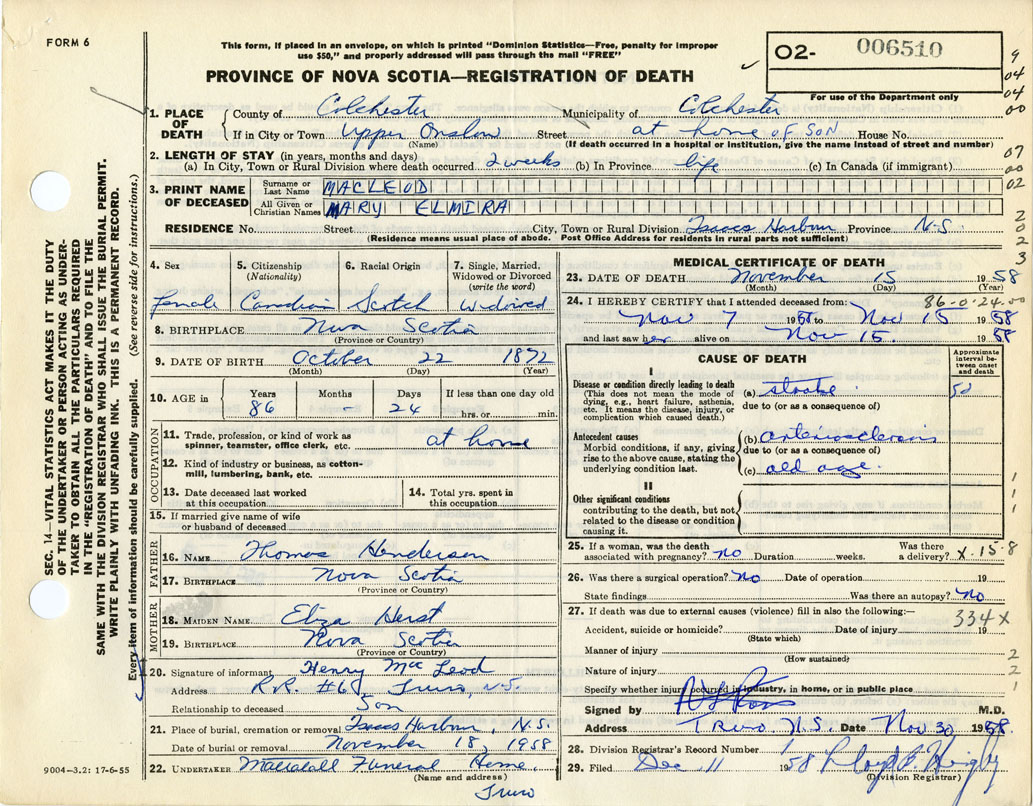 FORM 6
This form, if placed in an envelope, on which is printed "Dominion Statistics—Free, penalty for improper
use $50," and properly addressed will pass through the mail "FREE"
PROVINCE OF NOVA SCOTIA—REGISTRATION OF DEATH
O2- 006510
For use of the Department only
9
04
04
00
07
00
02
2
0
2
3
SEC. 14—VITAL STATISTICS ACT MAKES IT THE DUTY
OF THE UNDERTAKER OR PERSON ACTING AS UNDER-
TAKER TO OBTAIN ALL THE PARTICULARS REQUIRED
IN THE "REGISTRATION OF DEATH" AND TO FILE THE
SAME WITH THE DIVISION REGISTRAR WHO SHALL ISSUE THE BURIAL PERMIT.
WRITE PLAINLY WITH UNFADING INK. THIS IS A PERMANENT RECORD.
Every item of information should be carefully supplied. (See reverse side for instructions.)
1. PLACE OF DEATH
County of Colchester Municipality of Colchester
If in City or Town Upper Onslow Street at home of SON House No.
(Name) (If death occurred in a hospital or institution, give the name instead of street and number)
2. LENGTH OF STAY (in years, months and days)
(a) In City, Town or Rural Division where death occurred 2 weeks (b) In Province life (c) In Canada (if immigrant)
3. PRINT NAME OF DECEASED
Surname or Last Name MACLEOD
All Given or Christian Names MARY ELMIRA
RESIDENCE No. Street City, Town or Rural Division Isaacs Harbour Province N.S.
(Residence means usual place of abode. Post Office Address for residents in rural parts not sufficient)
4. Sex 5. Citizenship (Nationality) 6. Racial Origin 7. Single, Married, Widowed or Divorced (write the word)
Female Canadian Scotch Widowed
8. BIRTHPLACE Nova Scotia
(Province or Country)
9. DATE OF BIRTH October 22 1872
(Month) (Day) (Year)
10. AGE in Years 86 Months - Days 24 If less than one day old hrs. or min.
OCCUPATION
11. Trade, profession, or kind of work as spinner, teamster, office clerk, etc. at home
12. Kind of industry or business, as cotton-mill, lumbering, bank, etc.
13. Date deceased last worked at this occupation
14. Total yrs. spent in this occupation
15. If married give name of wife or husband of deceased
FATHER
16. NAME Thomas Henderson
17. BIRTHPLACE Nova Scotia
(Province or Country)
MOTHER
18. MAIDEN NAME Eliza Hurst
19. BIRTHPLACE Nova Scotia
(Province or Country)
20. Signature of informant Henry MacLeod
Address R.R. #6 Truro, N.S.
Relationship to deceased Son
21. Place of burial, cremation or removal Isaacs Harbour, N.S.
Date of burial or removal November 18, 1958
22. UNDERTAKER Funeral Home,
(Name and address)
Truro
9004—3.2: 17-6-55
MEDICAL CERTIFICATE OF DEATH
23. DATE OF DEATH November 15 1958
(Month) (Day) (Year)
24. I HEREBY CERTIFY that I attended deceased from: 86-0-24.00
Nov 7 1958 to Nov 15 1958
and last saw her alive on Nov 15. 1958
CAUSE OF DEATH
Approximate interval between onset and death
I
Disease or condition directly leading to death
(This does not mean the mode of dying, e.g., heart failure, asthenia, etc. It means the disease, injury, or complication which caused death.)
(a) stroke
due to (or as a consequence of)
Antecedent causes
Morbid conditions, if any, giving rise to the above cause, stating the underlying condition last.
(b) arteriosclerosis
due to (or as a consequence of)
(c) old age.
II
Other significant conditions
contributing to the death, but not related to the disease or condition causing it.
1
1
1
25. If a woman, was the death associated with pregnancy? no Duration weeks. Was there a delivery? X-15-8
26. Was there a surgical operation? No Date of operation 19
State findings Was there an autopsy? No
27. If death was due to external causes (violence) fill in also the following:— 334X
Accident, suicide or homicide? Date of injury 19
(State which)
Manner of injury 2
(How sustained)
Nature of injury 2
Specify whether injury occurred in industry, in home, or in public place 1
Signed by M.D.
Address TRURO N.S. Date Nov 30 1958.
28. Division Registrar's Record Number 1
29. Filed Dec 11 1958
(Division Registrar)